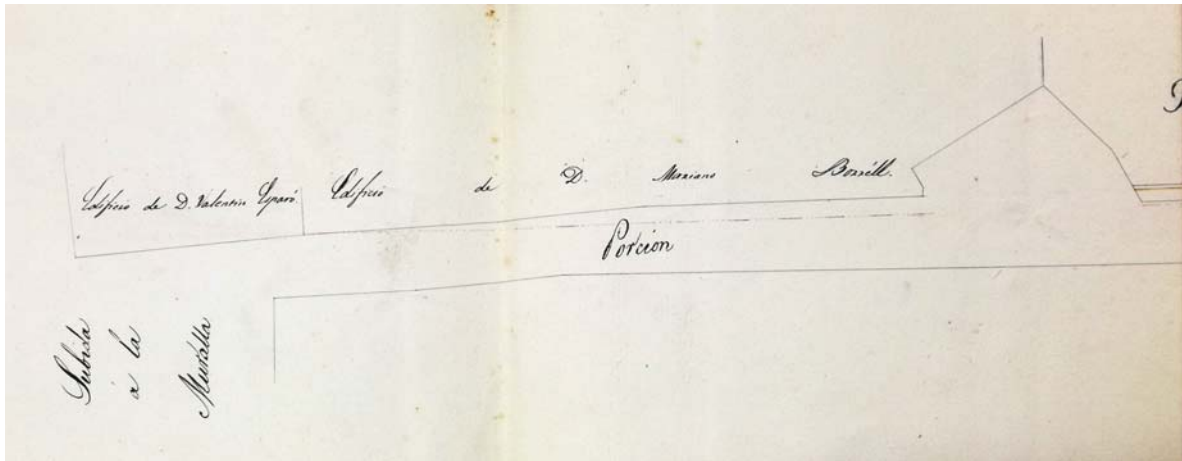 Edificio de D. Valentin Esparó.
Edificio de D. Mariano Borréll.
Porcion
Subida
à la
Muralla